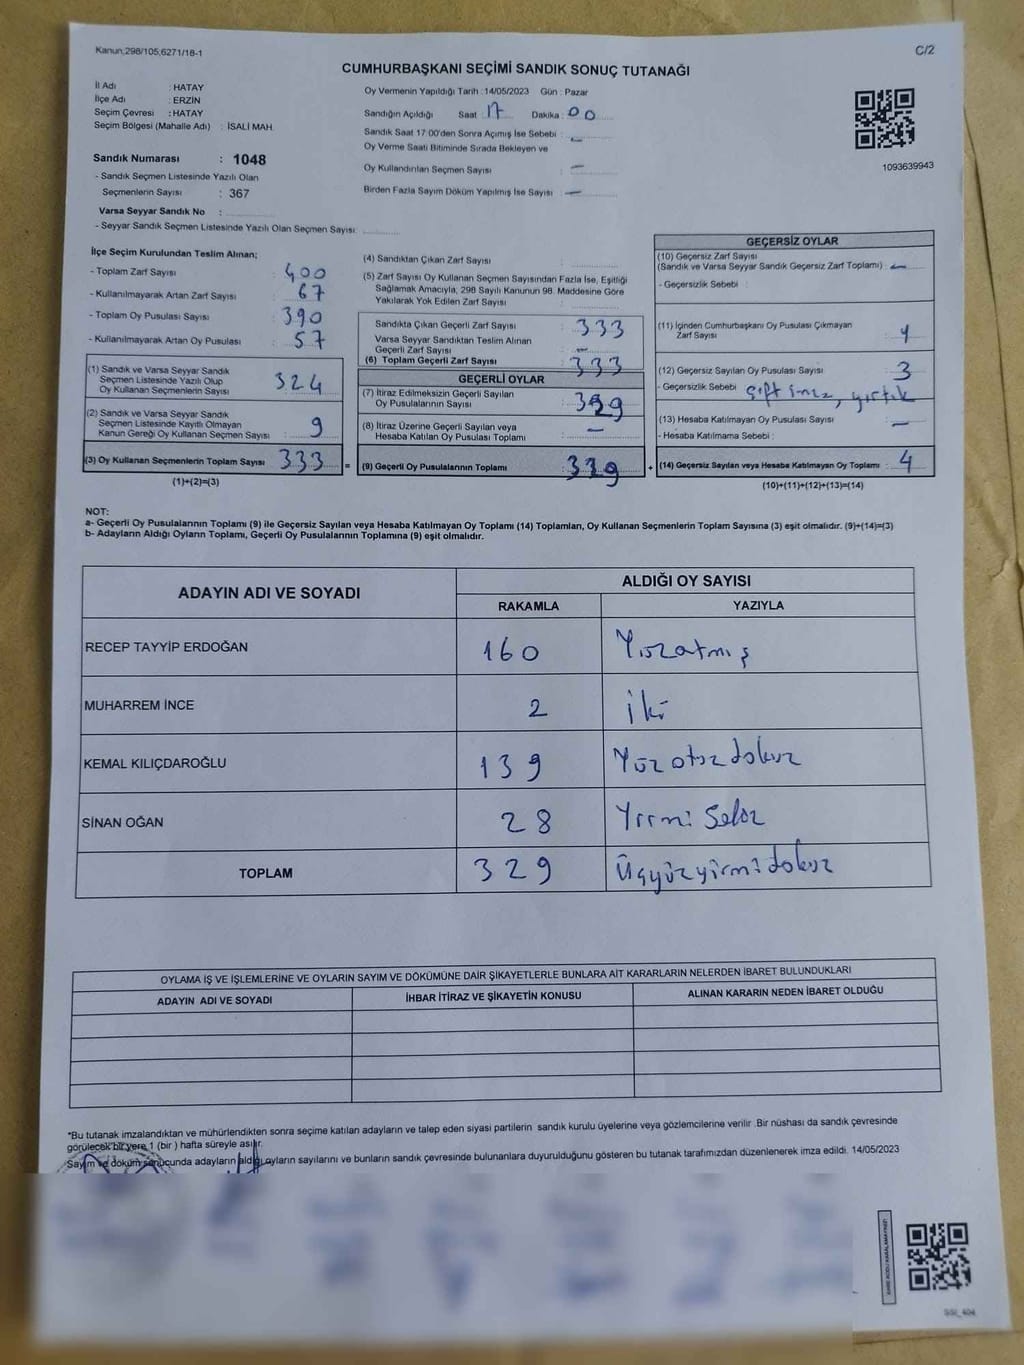 Kanun;298/105,6271/18-1
C/2
CUMHURBAŞKANI SEÇİMİ SANDIK SONUÇ TUTANAĞI
İl Adı : HATAY
İlçe Adı : ERZİN
Seçim Çevresi : HATAY
Seçim Bölgesi (Mahalle Adı) : İSALİ MAH.
Sandık Numarası : 1048
- Sandık Seçmen Listesinde Yazılı Olan
Seçmenlerin Sayısı : 367
Varsa Seyyar Sandık No :
- Seyyar Sandık Seçmen Listesinde Yazılı Olan Seçmen Sayısı:
Oy Vermenin Yapıldığı Tarih : 14/05/2023 Gün : Pazar
Sandığın Açıldığı Saat : 17 Dakika : 00
Sandık Saat 17:00'den Sonra Açımış İse Sebebi : -
Oy Verme Saati Bitiminde Sırada Bekleyen ve
Oy Kullandırılan Seçmen Sayısı : -
Birden Fazla Sayım Döküm Yapılmış İse Sayısı : -
1093639943
İlçe Seçim Kurulundan Teslim Alınan;
- Toplam Zarf Sayısı : 400
- Kullanılmayarak Artan Zarf Sayısı : 67
- Toplam Oy Pusulası Sayısı : 390
- Kullanılmayarak Artan Oy Pusulası : 57
(1) Sandık ve Varsa Seyyar Sandık
Seçmen Listesinde Yazılı Olup
Oy Kullanan Seçmenlerin Sayısı : 324
(2) Sandık ve Varsa Seyyar Sandık
Seçmen Listesinde Kayıtlı Olmayan
Kanun Gereği Oy Kullanan Seçmen Sayısı : 9
(3) Oy Kullanan Seçmenlerin Toplam Sayısı : 333 =
(1)+(2)=(3)
(4) Sandıktan Çıkan Zarf Sayısı :
(5) Zarf Sayısı Oy Kullanan Seçmen Sayısından Fazla İse, Eşitliği
Sağlamak Amacıyla, 298 Sayılı Kanunun 98. Maddesine Göre
Yakılarak Yok Edilen Zarf Sayısı :
Sandıkta Çıkan Geçerli Zarf Sayısı : 333
Varsa Seyyar Sandıktan Teslim Alınan
Geçerli Zarf Sayısı : -
(6) Toplam Geçerli Zarf Sayısı : 333
GEÇERLİ OYLAR
(7) İtiraz Edilmeksizin Geçerli Sayılan
Oy Pusulasının Sayısı : 329
(8) İtiraz Üzerine Geçerli Sayılan veya
Hesaba Katılan Oy Pusulası Toplamı : -
(9) Geçerli Oy Pusulalarının Toplamı : 329 +
GEÇERSİZ OYLAR
(10) Geçersiz Zarf Sayısı
(Sandık ve Varsa Seyyar Sandık Geçersiz Zarf Toplamı) : -
- Geçersizlik Sebebi :
(11) İçinden Cumhurbaşkanı Oy Pusulası Çıkmayan
Zarf Sayısı : 1
(12) Geçersiz Sayılan Oy Pusulası Sayısı : 3
- Geçersizlik Sebebi : çift imza, yırtık
(13) Hesaba Katılmayan Oy Pusulası Sayısı : -
- Hesaba Katılmama Sebebi :
(14) Geçersiz Sayılan veya Hesaba Katılmayan Oy Toplamı : 4
(10)+(11)+(12)+(13)=(14)
NOT:
a- Geçerli Oy Pusulalarının Toplamı (9) ile Geçersiz Sayılan veya Hesaba Katılmayan Oy Toplamı (14) Toplamları, Oy Kullanan Seçmenlerin Toplam Sayısına (3) eşit olmalıdır. (9)+(14)=(3)
b- Adayların Aldığı Oyların Toplamı, Geçerli Oy Pusulalarının Toplamına (9) eşit olmalıdır.
ADAYIN ADI VE SOYADI
ALDIĞI OY SAYISI
RAKAMLA YAZIYLA
RECEP TAYYİP ERDOĞAN 160 Yüzatmış
MUHARREM İNCE 2 iki
KEMAL KILIÇDAROĞLU 139 Yüz otuz dokuz
SİNAN OĞAN 28 Yirmi Sekiz
TOPLAM 329 Üçyüzyirmidokuz
OYLAMA İŞ VE İŞLEMLERİNE VE OYLARIN SAYIM VE DÖKÜMÜNE DAİR ŞİKAYETLERLE BUNLARA AİT KARARLARIN NELERDEN İBARET BULUNDUKLARI
ADAYIN ADI VE SOYADI İHBAR İTİRAZ VE ŞİKAYETİN KONUSU ALINAN KARARIN NEDEN İBARET OLDUĞU
*Bu tutanak imzalandıktan ve mühürlendikten sonra seçime katılan adayların ve talep eden siyasi partilerin sandık kurulu üyelerine veya gözlemcilerine verilir .Bir nüshası da sandık çevresinde
görülecek bir yere 1 (bir ) hafta süreyle asılır.
Sayım ve döküm sonucunda adayların aldığı oyların sayılarını ve bunların sandık çevresinde bulunanlara duyurulduğunu gösteren bu tutanak tarafımızdan düzenlenerek imza edildi. 14/05/2023